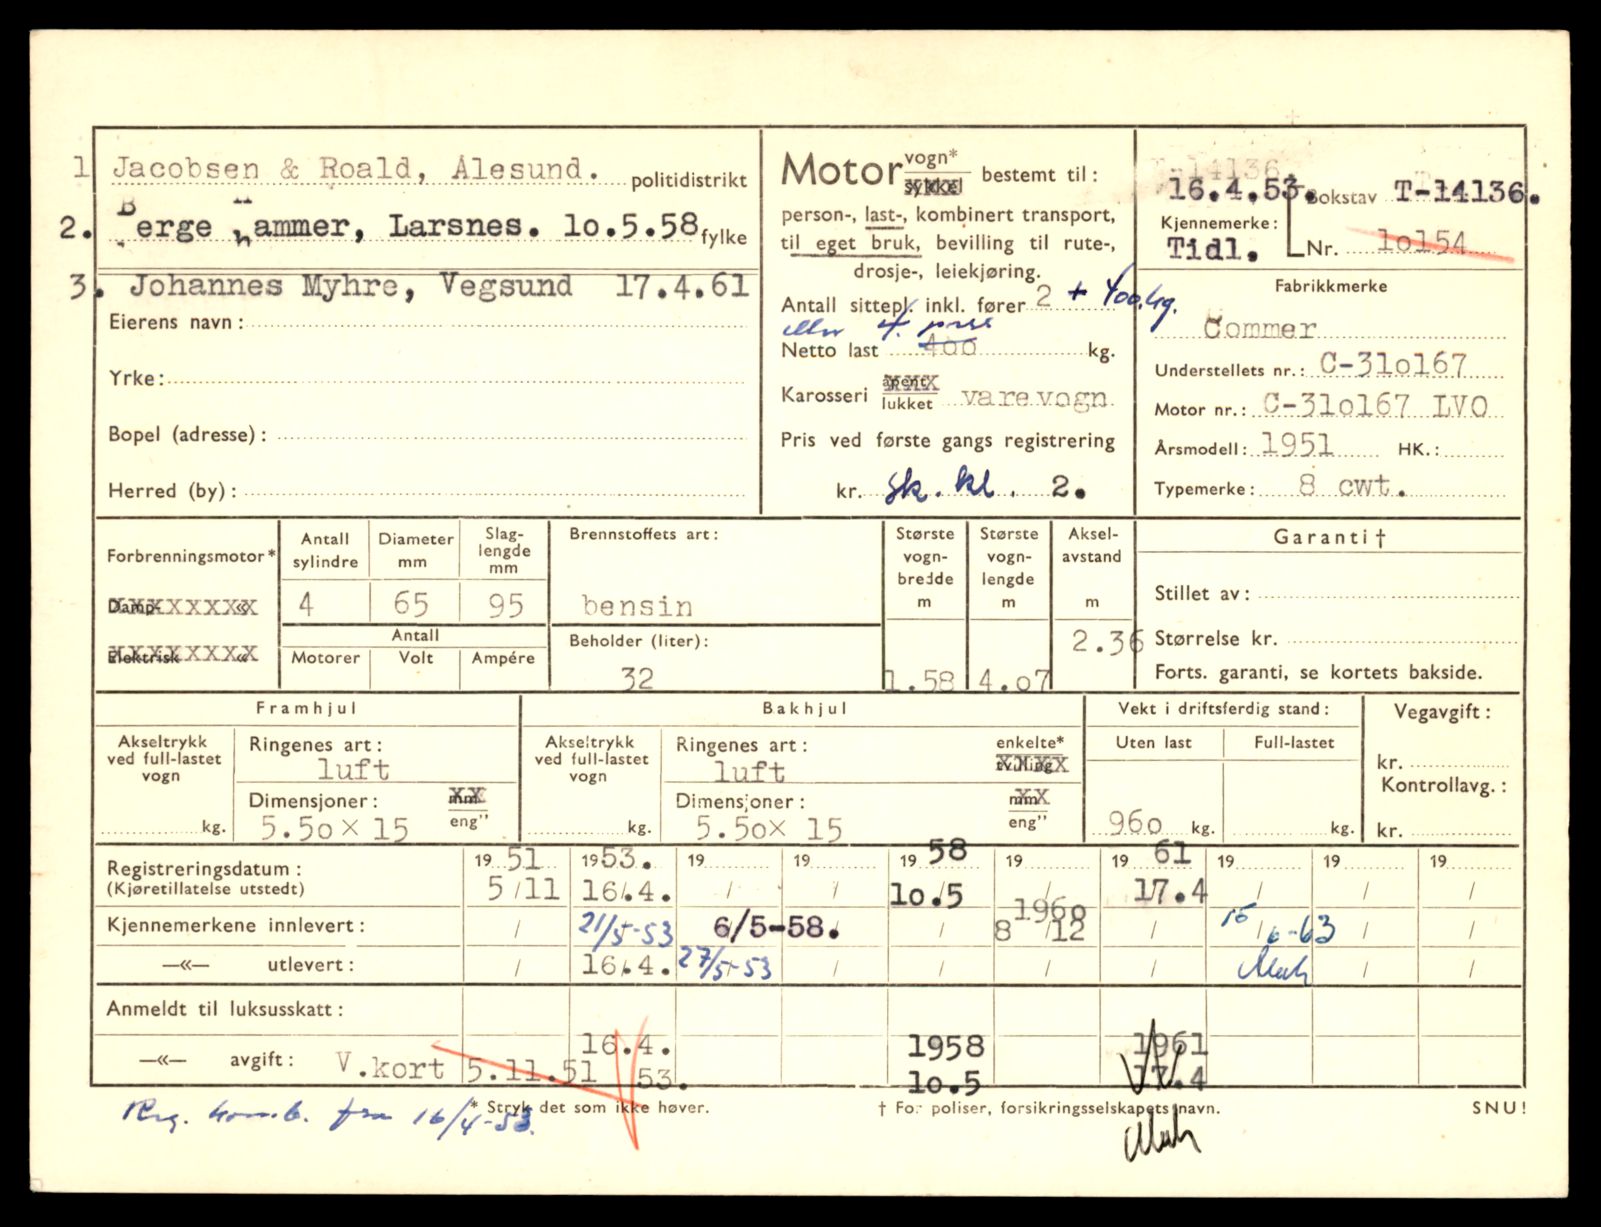 1 Jacobsen & Roald, Ålesund. politidistrikt
2. Berge Hammer, Larsnes. 1o.5.58 fylke
3. Johannes Myhre, Vegsund 17.4.61
Eierens navn:
Yrke:
Bopel (adresse):
Herred (by):
Motor vogn* sykkel bestemt til:
person-, last-, kombinert transport,
til eget bruk, bevilling til rute-,
drosje-, leiekjøring.
Antall sittepl. inkl. fører 2 + 400 kg.
eller 4. pers
Netto last 400 kg.
Karosseri åpent lukket varevogn
Pris ved første gangs registrering
kr. sk. kl. 2.
T-14136
16.4.53. Bokstav T-14136.
Kjennemerke:
Tidl. Nr. 1o154
Fabrikkmerke
Commer
Understellets nr.: C-31o167
Motor nr.: C-31o167 LVO
Årsmodell: 1951 HK.:
Typemerke: 8 cwt.
Forbrenningsmotor*
Damp- «
Elektrisk «
Antall sylindre 4
Diameter mm 65
Slag-lengde mm 95
Antall
Motorer Volt Ampére
Brennstoffets art:
bensin
Beholder (liter):
32
Største vogn-bredde m 1.58
Største vogn-lengde m 4.o7
Aksel-avstand m 2.36
Garanti †
Stillet av:
Størrelse kr.
Forts. garanti, se kortets bakside.
Framhjul
Akseltrykk ved full-lastet vogn kg.
Ringenes art: luft
Dimensjoner: mm eng"
5.5o x 15
Bakhjul
Akseltrykk ved full-lastet vogn kg.
Ringenes art: luft enkelte* tvilling
Dimensjoner: mm eng"
5.5ox 15
Vekt i driftsferdig stand:
Uten last Full-lastet
96o kg. kg.
Vegavgift:
kr.
Kontrollavg.:
kr.
Registreringsdatum: 19 51 1953. 19 19 19 58 19 19 61 19 19 19
(Kjøretillatelse utstedt) 5/11 16/.4. / / 1o.5 / 17.4 / / /
Kjennemerkene innlevert: / 21/5-53 6/5-58. / 8/12 196o / 15/6-63 / /
—«— utlevert: / 16/.4. 27/5-53 / / / / / /
Anmeldt til luksusskatt:
—«— avgift: V.kort 5.11.51 16.4. 53. 1958 1o.5 1961 17.4
Reg. komb. fra 16/4-53.
* Stryk det som ikke høver. † For poliser, forsikringsselskapets navn. SNU!